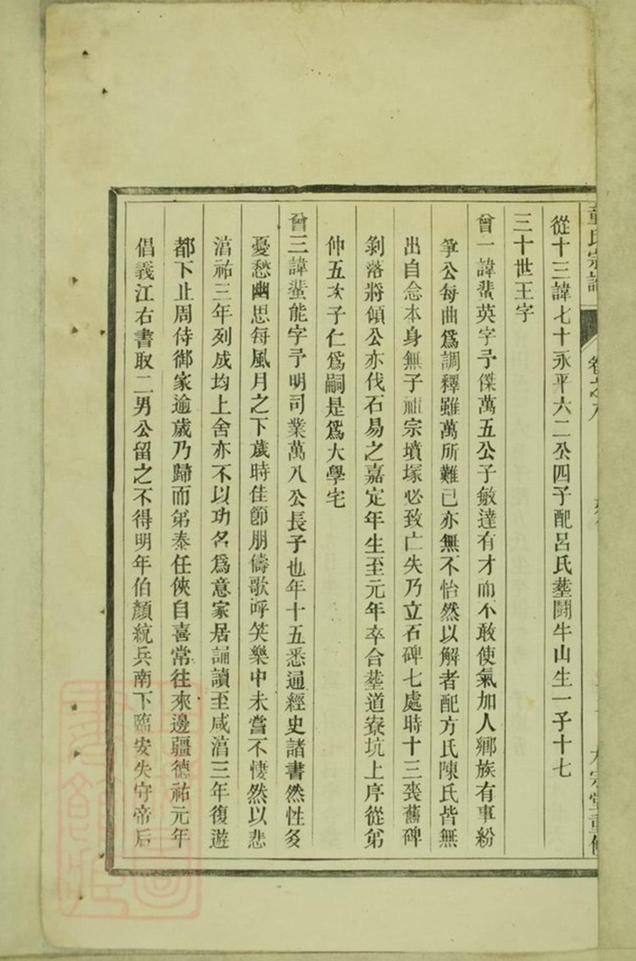 童氏宗譜 卷之八
從十三諱七十永平六二公四子配呂氏塟鬪牛山生一子十七
三十世王字
曾一諱蜚英字予傑萬五公子敏達有才而不敢使氣加人鄉族有事紛
爭公每曲爲調釋雖萬所難已亦無不怡然以解者配方氏陳氏皆無
出自念本身無子祖宗墳塚必致亡失乃立石碑七處時十三喪舊碑
剝落將傾公亦伐石易之嘉定年生至元年卒合塟道寮坑上序從第
仲五次子仁爲嗣是爲大學宅
曾三諱蜚能字予明司業萬八公長子也年十五悉通經史諸書然性多
憂愁幽思每風月之下歲時佳節朋儔歌呼笑樂中未嘗不悽然以悲
湻祐三年列成均上舍亦不以功名爲意家居誦讀至咸湻三年復遊
都下止周侍御家逾歲乃歸而第泰任俠自喜常往來邊疆德祐元年
倡義江右書取二男公留之不得明年伯顏統兵南下臨安失守帝后